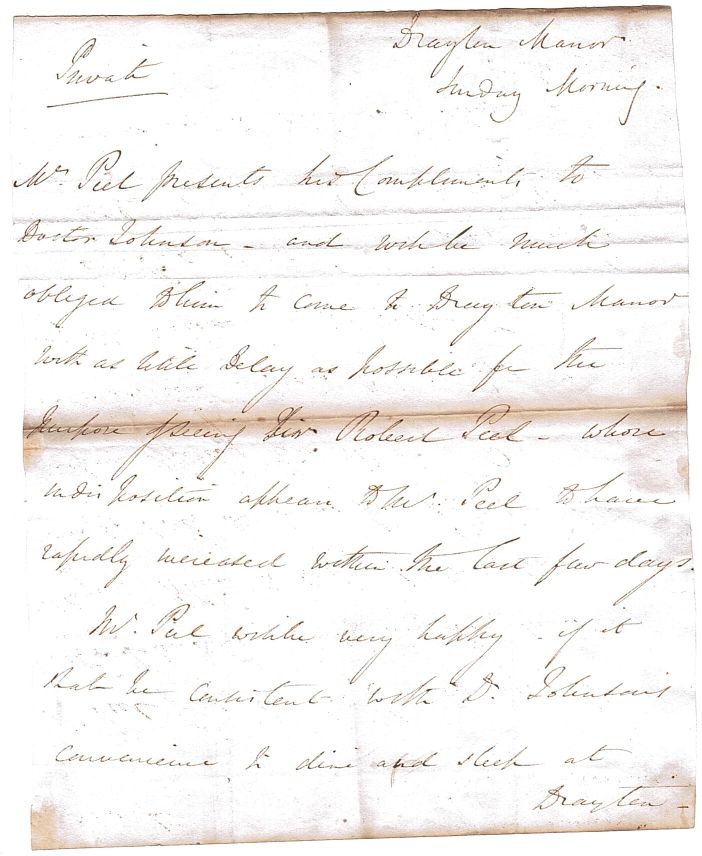 Private
Drayton Manor
Sunday Morning.
Mr. Peel presents his Compliments to
Doctor Johnson – and will be much
obliged to him to come to Drayton Manor
with as little Delay as possible for the
purpose of seeing Sir Robert Peel – whose
indisposition appears to Mr. Peel to have
rapidly increased within the last few days.
Mr. Peel will be very happy – if it
shall be consistent with Dr. Johnson's
convenience to dine and sleep at
Drayton –